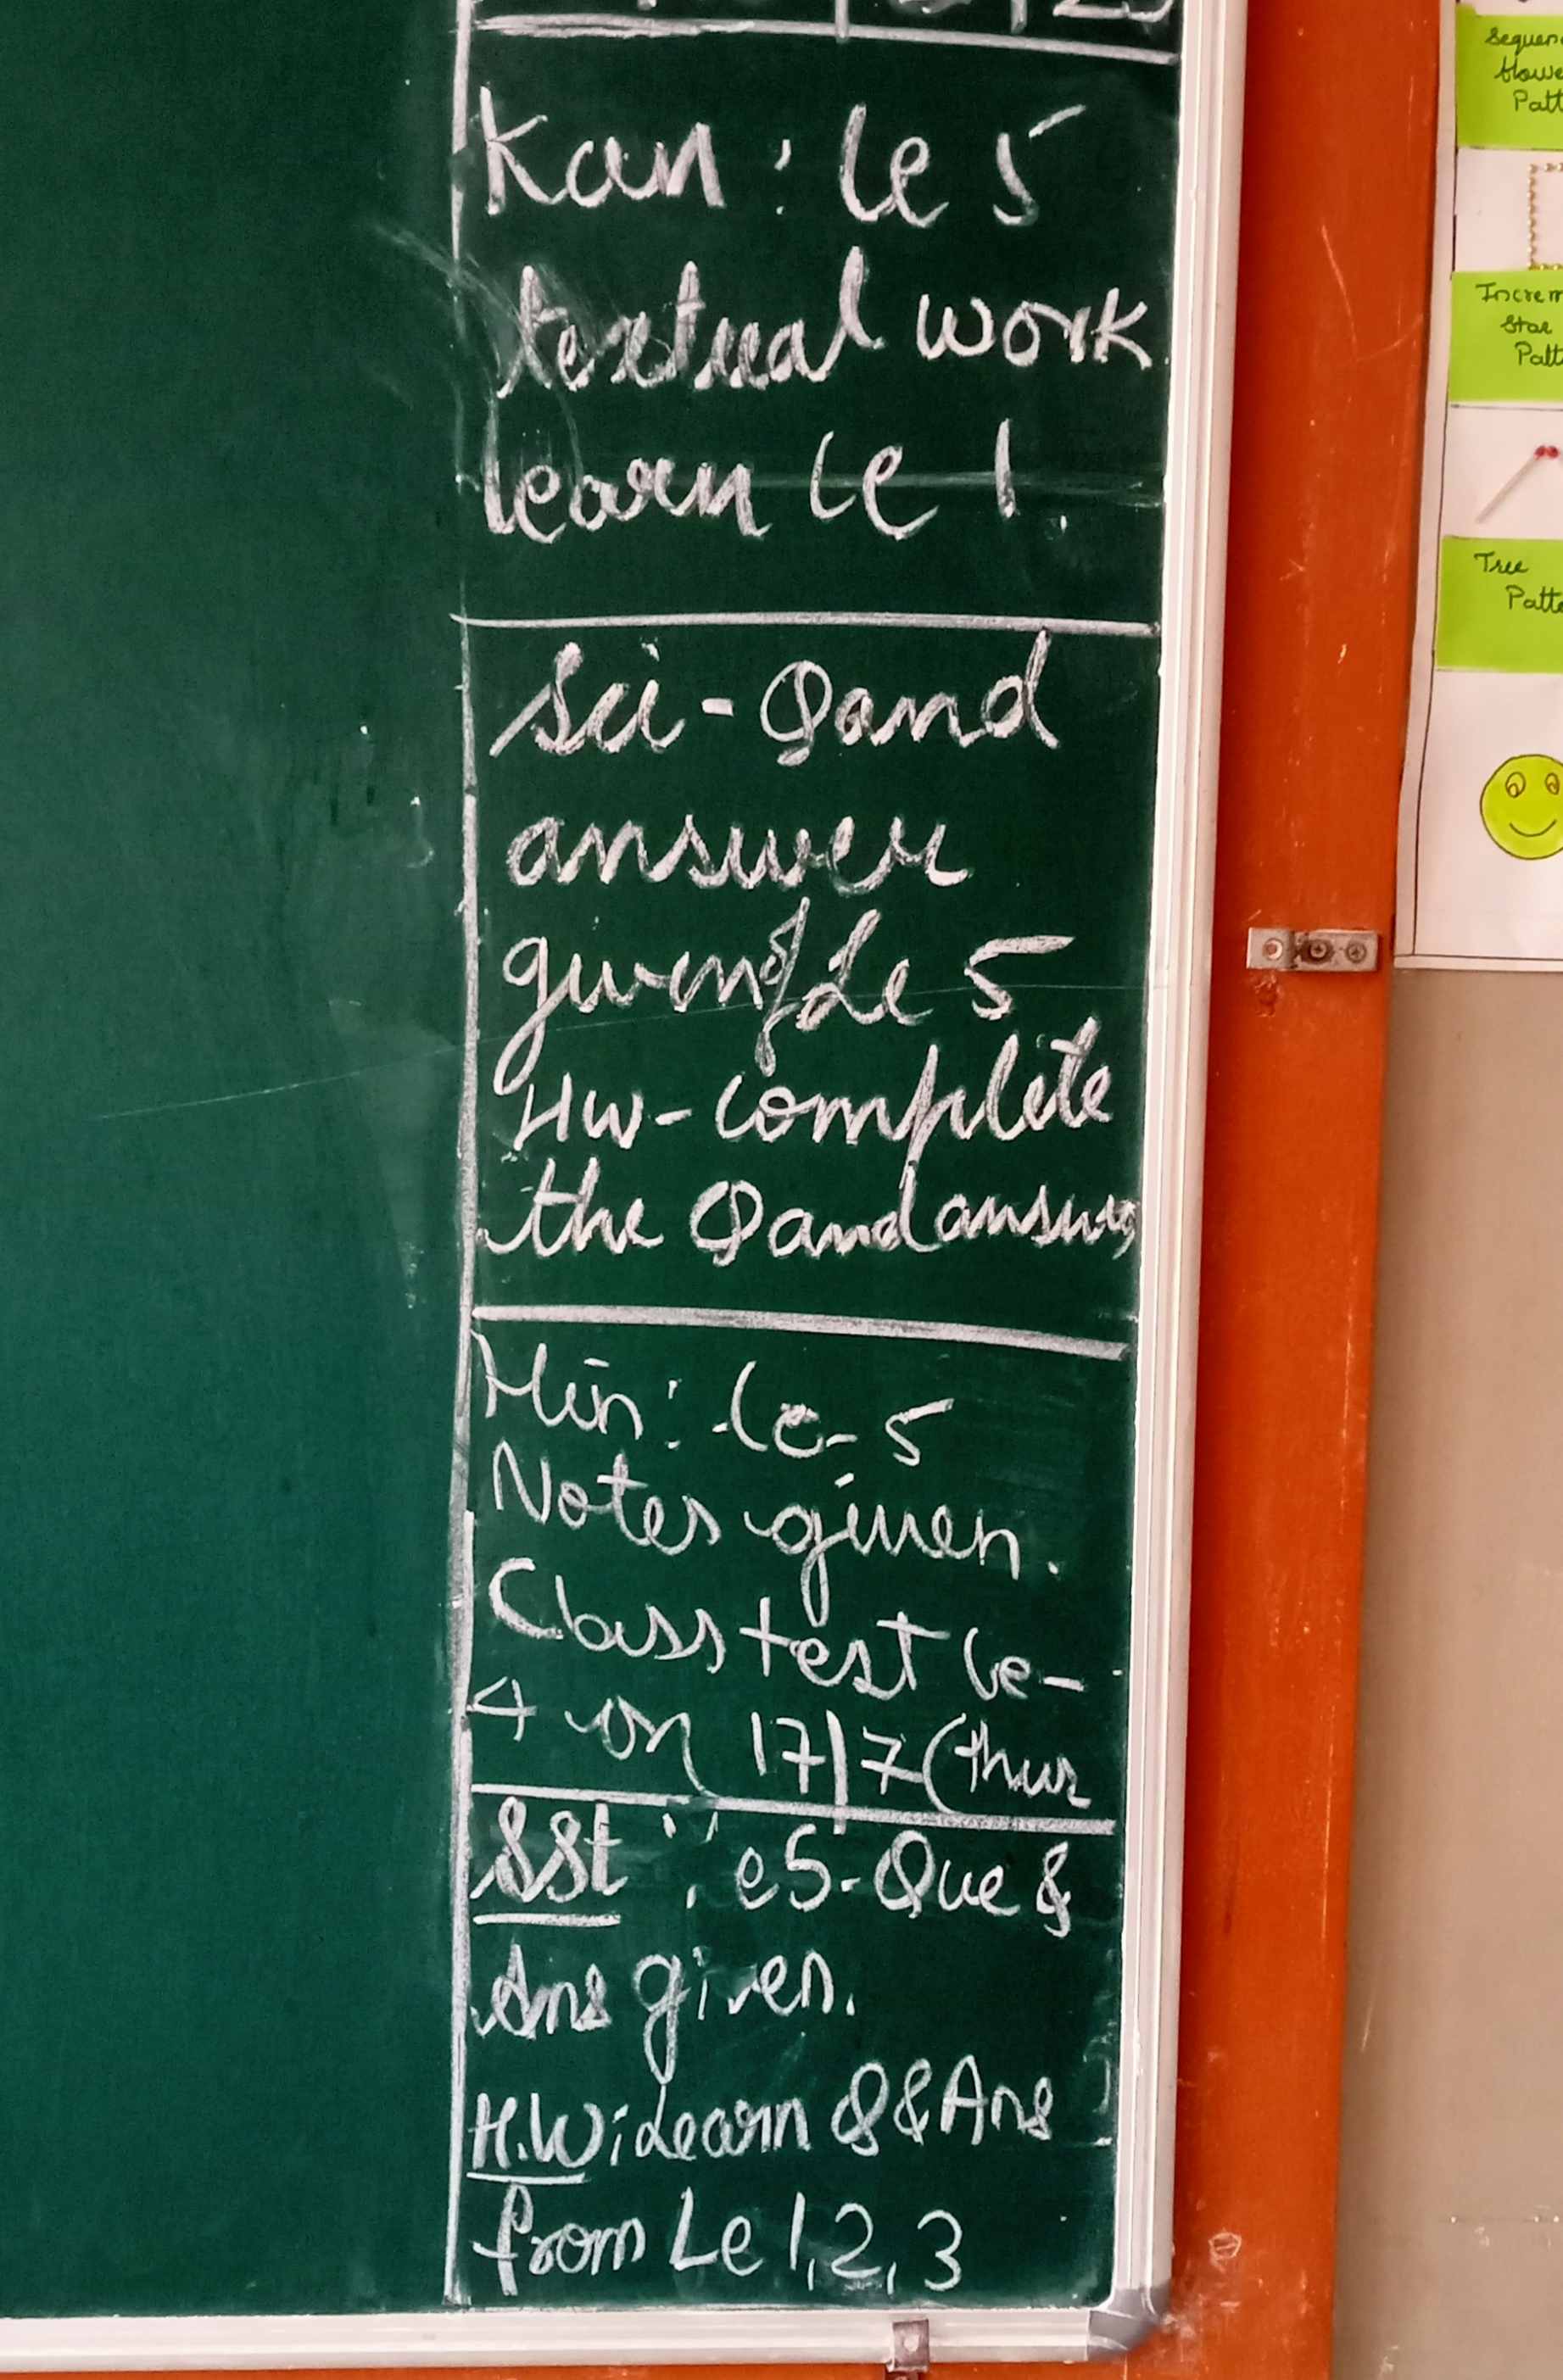 Kan : le 5
textual work
learn le 1.
Sci - Q and
answer
given of Le 5
HW - complete
the Q and answer
Hin : le - 5
Notes given.
Class test le -
4 on 17/7 (thur
SSt : e5 - Que &
Ans given.
H.W : Learn Q & Ans
from Le 1, 2, 3
Tree